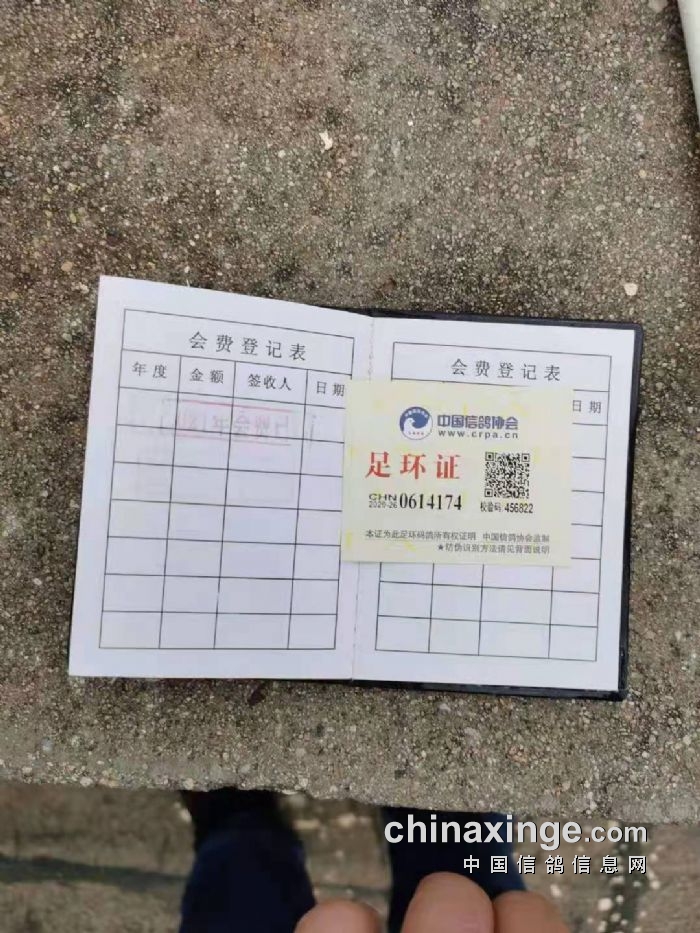 会费登记表
年度 金额 签收人 日期
会费登记表
日期
中国信鸽协会
www.crpa.cn
足环证
CHN
2020-26 0614174
校验码: 456822
本证为此足环码鸽所有权证明 中国信鸽协会监制
★防伪识别方法请见背面说明
chinaxinge.com
中国信鸽信息网